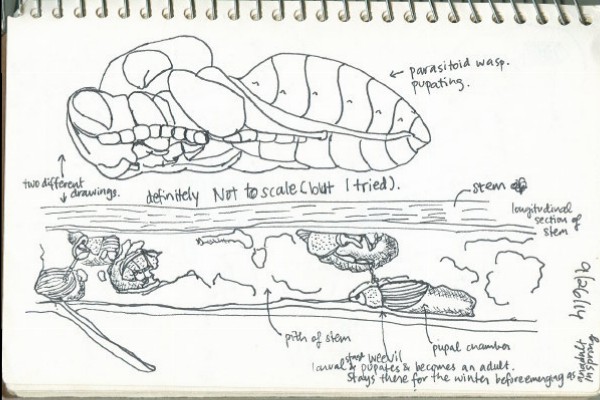 ← parasitoid wasp.
pupating.
two different
drawings.
definitely Not to scale (but I tried).
stem
longitudinal
section of
stem
9/26/14
pith of stem
pupal chamber
weevil
larval & pupates & becomes an adult.
stays there for the winter before emerging as
an adult
in spring